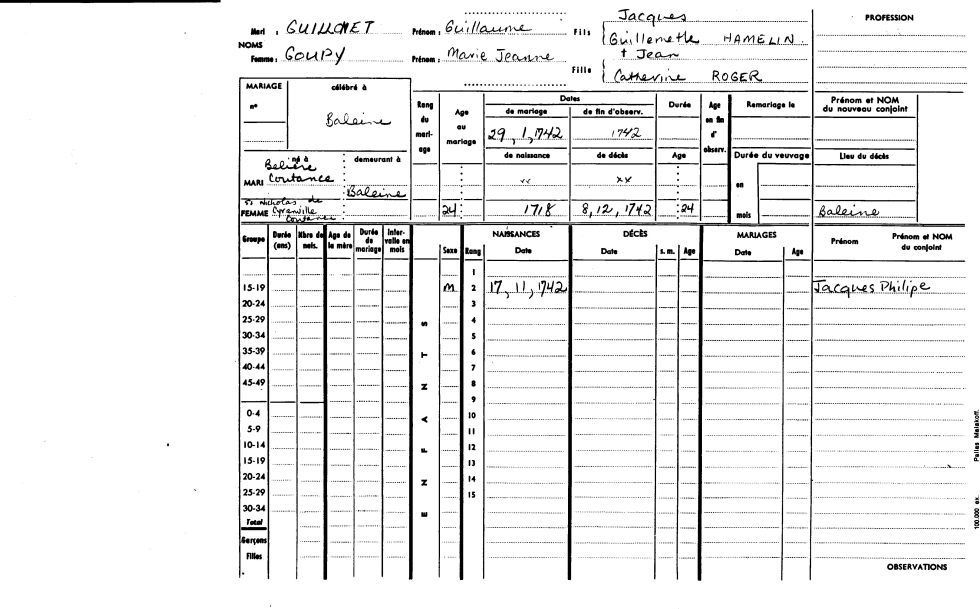 Jacques PROFESSION
Mari : GUILLONET Prénom : Guillaume Fils { Guillemette HAMELIN.
NOMS † Jean
Femme : GOUPY Prénom : Marie Jeanne Fille { Catherine ROGER
MARIAGE célébré à Rang du mari-age Age au mariage Dates Durée Age en fin d'observ. Remariage le Prénom et NOM du nouveau conjoint
n° de mariage de fin d'observ.
Baleine 29, 1, 1742 1742
né à demeurant à de naissance de décès Age Durée du veuvage Lieu du décès
Belière
MARI Coutance Baleine xx xx en
St Nicholas de
FEMME Coutance 24 1718 8, 12, 1742 24 mois Baleine
Groupe Durée (ans) Nbre de nais. Age de la mère Durée de mariage Inter-valle en mois Sexe Rang NAISSANCES DÉCÈS MARIAGES Prénom Prénom et NOM du conjoint
Date Date s. m. Age Date Age
1
15-19 M 2 17, 11, 1742 Jacques Philipe
20-24 3
25-29 S 4
30-34 5
35-39 T 6
40-44 7
45-49 N 8
9
0-4 A 10
5-9 11
10-14 F 12
15-19 13
20-24 N 14
25-29 15
30-34 E
Total
Garçons
Filles
OBSERVATIONS
100.000 ex. Pallas Malakoff.